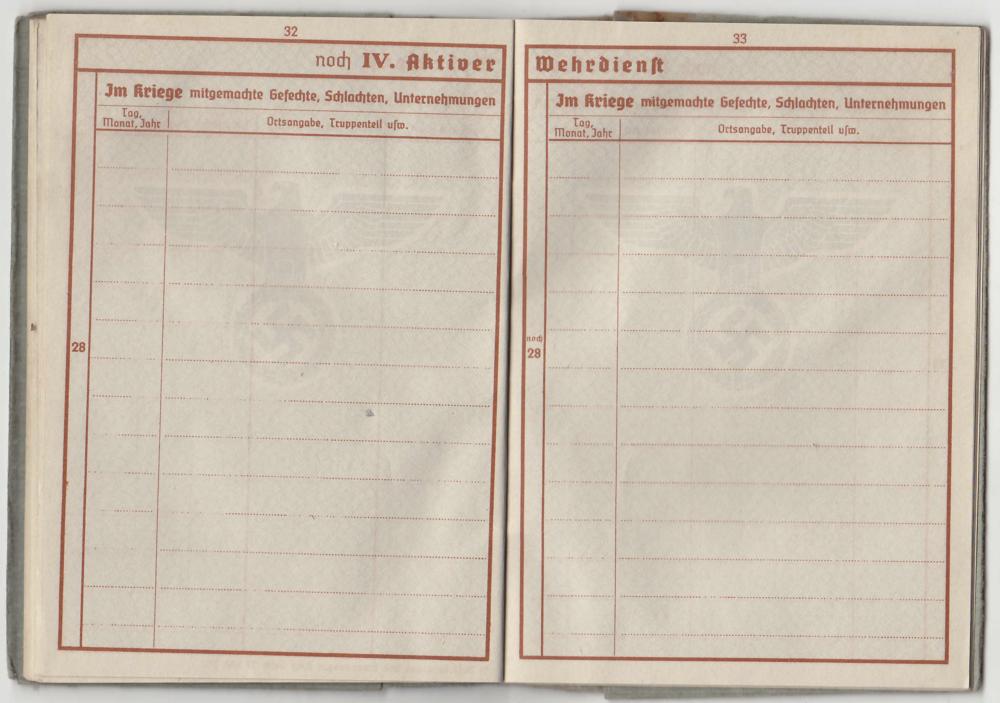 32
noch IV. Aktiver
Im Kriege mitgemachte Gefechte, Schlachten, Unternehmungen
Tag,
Monat, Jahr
Ortsangabe, Truppenteil usw.
28
33
Wehrdienst
Im Kriege mitgemachte Gefechte, Schlachten, Unternehmungen
Tag,
Monat, Jahr
Ortsangabe, Truppenteil usw.
noch
28